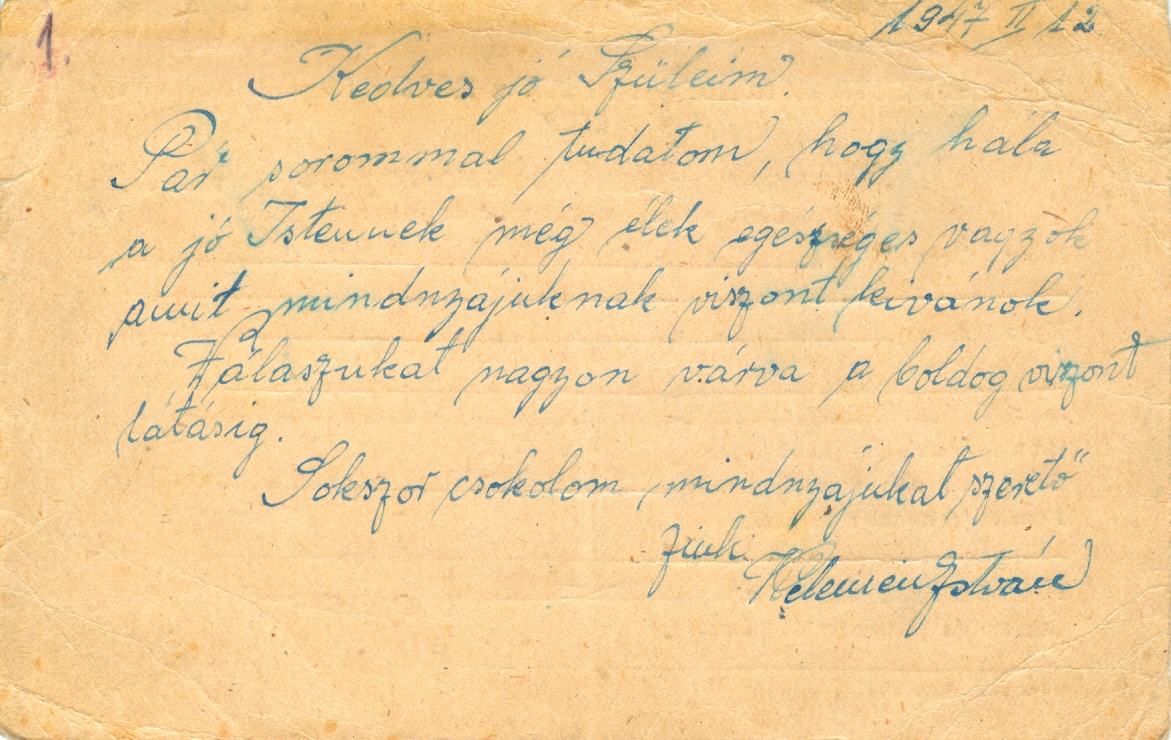 1.
1947 II 12
Kedves jó Szüleim.
Pár sorommal tudatom, hogy hála
a jó Istennek még élek egészséges vagyok
amit mindnyájuknak viszont kivánok.
Válaszukat nagyon várva a boldog viszont
látásig.
Sokszor csokolom mindnyájukat szerető
fiuk Kelemen István